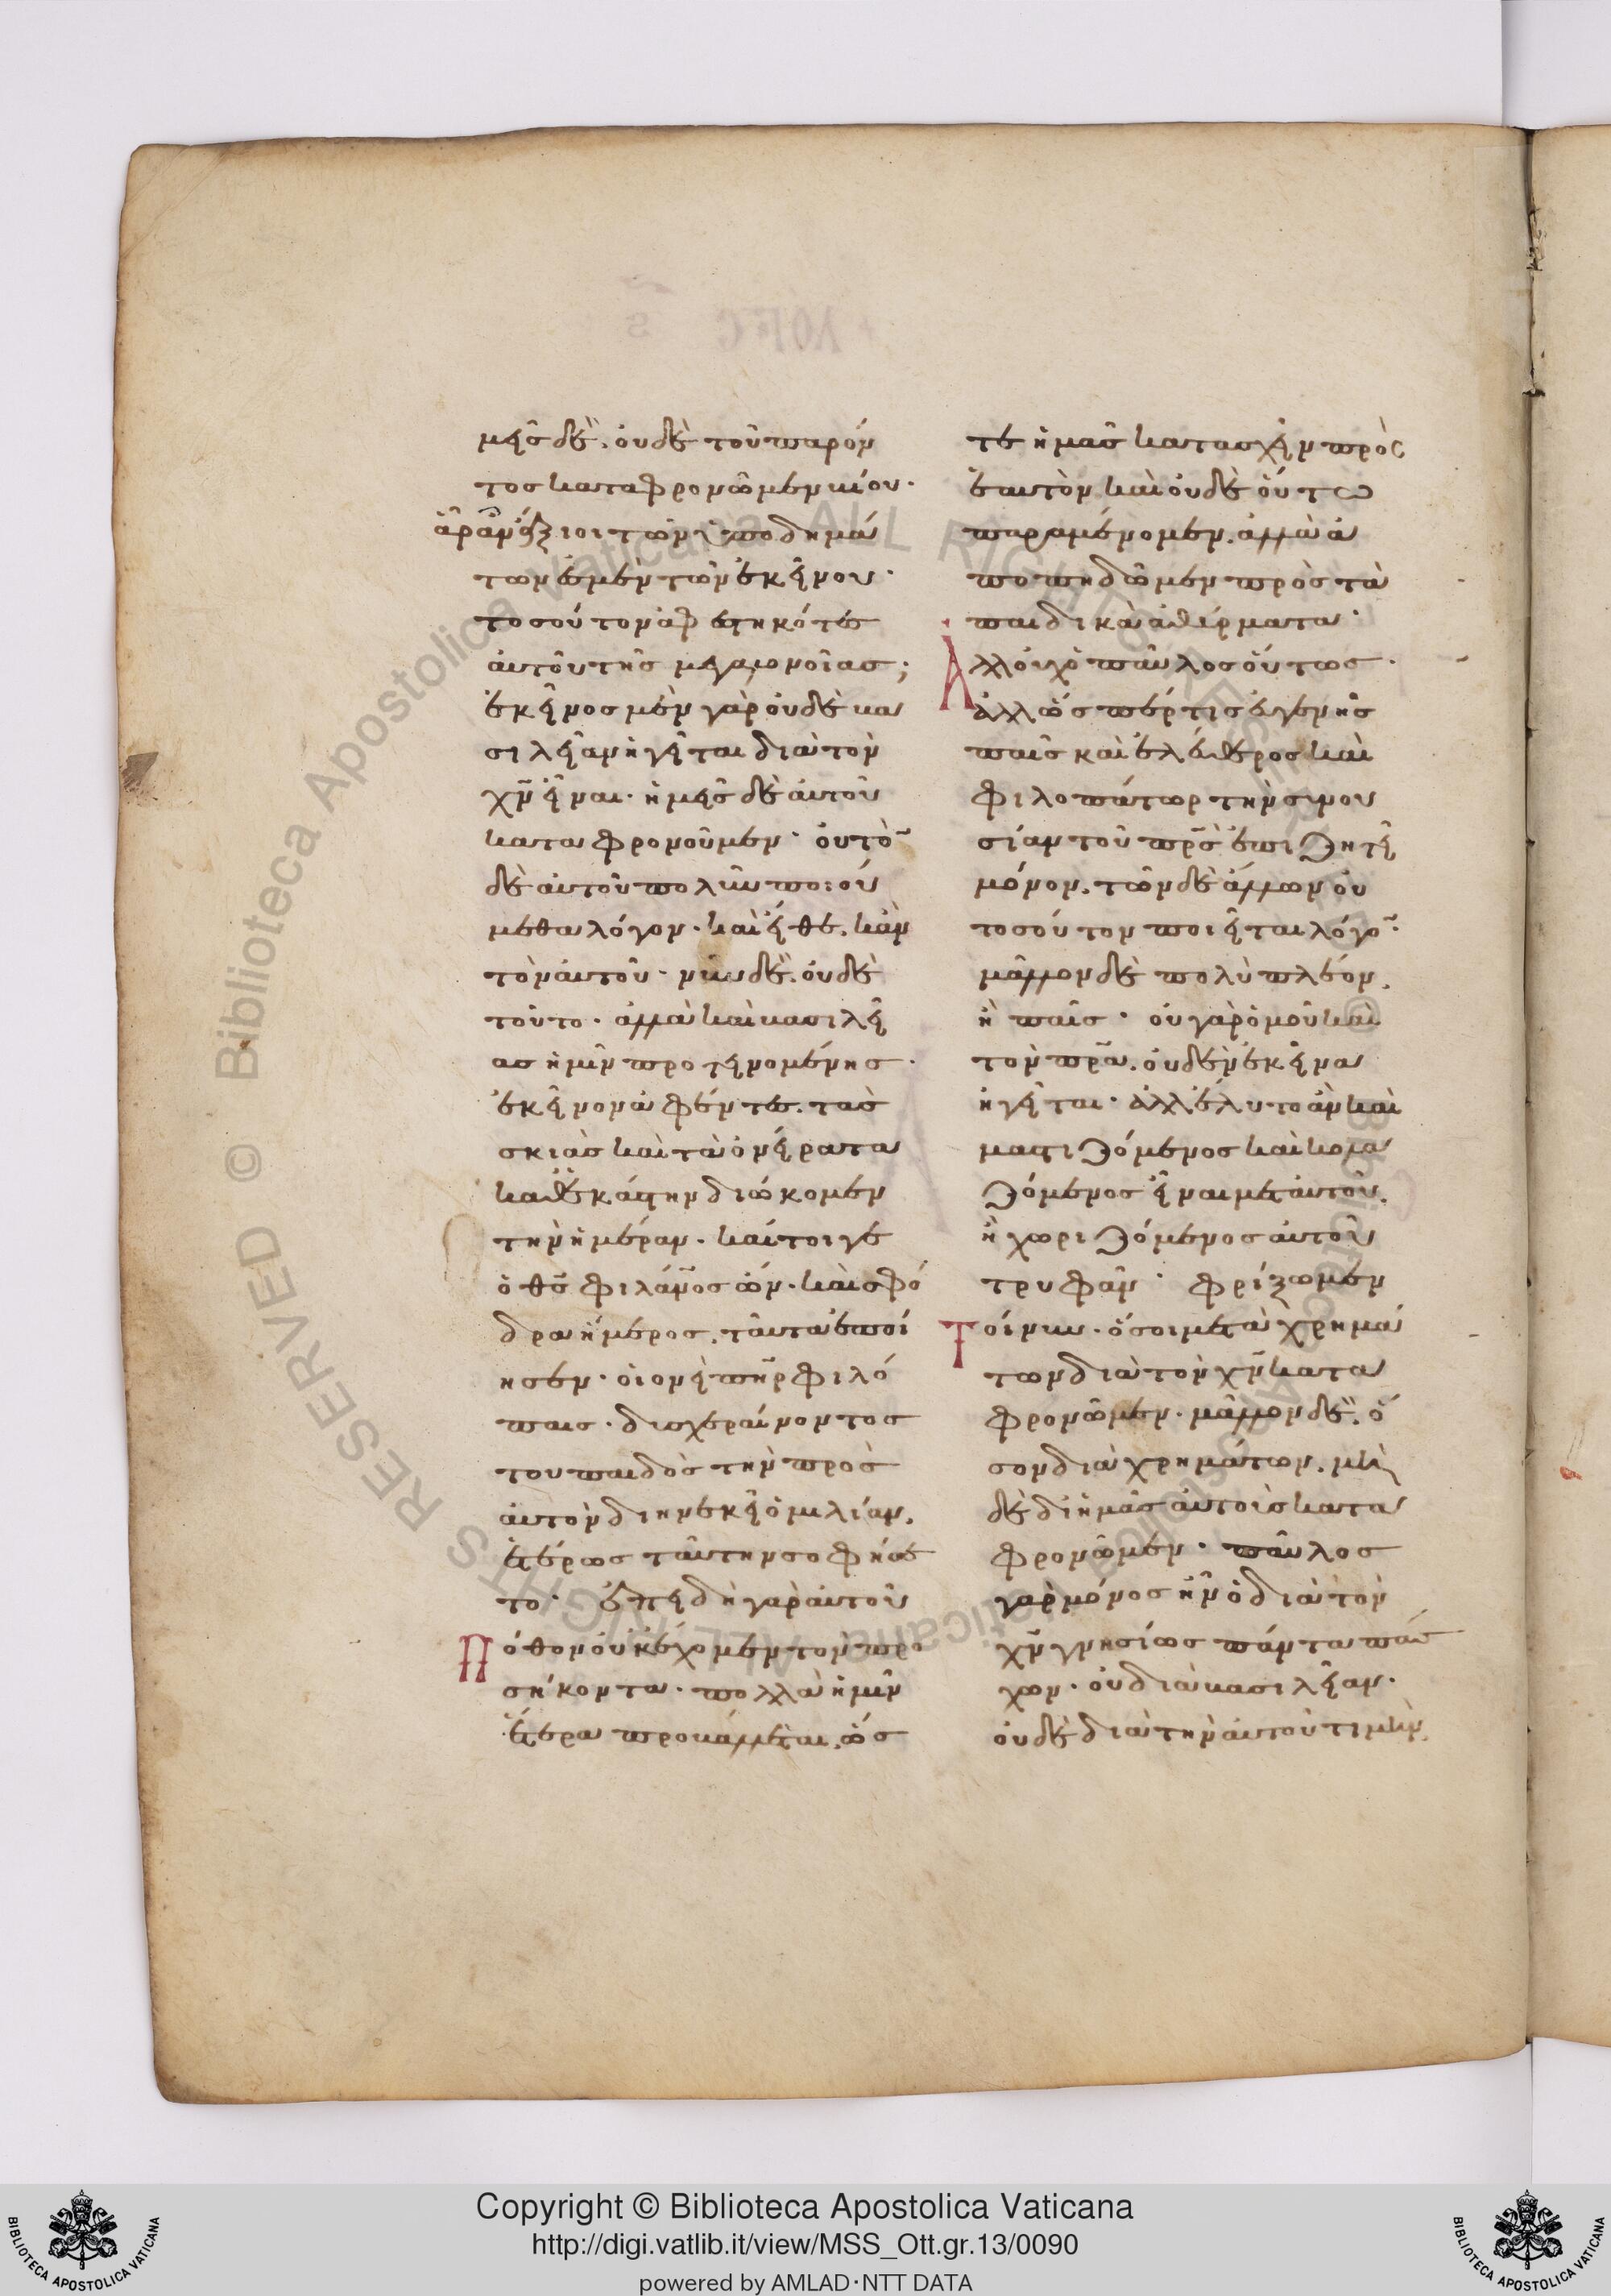 μεῖς δὲ, οὐδὲ τοῦ παρόν
τος καταφρονῶμεν βίου·
ἆρα ἂν ἄξιοι τῶν ὑποδημά
των ἐσμὲν τῶν ἐκείνου·
τοσοῦτον ἀφεστηκότες
αὐτοῦ τῆς μεγαλονοίας;
ἐκεῖνος μὲν γὰρ οὐδὲ βα
σιλείαν ἡγεῖται διὰ τὸν
χν̄ εἶναι· ἡμεῖς δὲ αὐτοῦ
καταφρονοῦμεν· οὐ τὸ
δὲ αὐτοῦ πολὺν ποιού
μεθα λόγον· καὶ εἴθε, κἂν
τὸν αὐτοῦ· νῦν δὲ, οὐδὲ
τοῦτο· ἀλλὰ καὶ βασιλεί
ας ἡμῖν προτεινομένης·
ἐκεῖνον ἀφέντες, τὰς
σκιὰς καὶ τὰ ὀνείρατα
καθ' ἑκάστην διώκομεν
τὴν ἡμέραν· καίτοιγε
ὁ θς̄ φιλάν̄ος ὤν· καὶ σφό
δρα ἥμερος, ταῦτα ἐποί
ησεν· οἷον εἰ πηρ̄ φιλό
παις· δυσχεραίνοντος
τοῦ παιδὸς τὴν πρὸς
αὐτὸν διηνεκῆ ὁμιλίαν,
ἑτέρως ταύτην σοφίσαι
το· Ἐπειδὴ γὰρ αὐτοῦ
πόθον οὐκ ἔχομεν τὸν προ
σήκοντα· πολλὰ ἡμῖν
ἕτερα προβάλλεται, ὥσ
τε ἡμᾶς κατασχεῖν πρὸς
ἑαυτὸν καὶ οὐδὲ οὕτω
παραμένομεν, ἀλλὰ ἀ
ποπηδῶμεν πρὸς τὰ
παιδικὰ ἀθύρματα·
Ἀλλ' οὐχ ὁ παῦλος οὕτως·
ἀλλ' ὥσπερ τις εὐγενὴς
παῖς καὶ ἐλεύθερος καὶ
φιλοπάτωρ τὴν συνου
σίαν τοῦ πρς̄ ἐπιζητεῖ
μόνον, τῶν δὲ ἄλλων οὐ
τοσοῦτον ποιεῖται λόγο̄·
μᾶλλον δὲ πολὺ πλέον,
ἢ παῖς· οὐ γὰρ ὁμοῦ καὶ
τὸν πρᾱ, οὐδὲν ἐκεῖνα
ἡγεῖται· ἀλλ' εἵλετο ἂν καὶ
μαστιζόμενος καὶ κολα
ζόμενος εἶναι μετ' αὐτοῦ,
ἢ χωριζόμενος αὐτοῦ
τρυφᾶν· φρίξωμεν
τοίνυν· ὅσοι μετὰ χρημά
των διὰ τὸν χν̄ κατα
φρονῶμεν· μᾶλλον δὲ, ὅ
σον διὰ χρημάτων, μη
δὲ δι' ἡμᾶς αὐτοὺς κατα
φρονῶμεν· παῦλος
γὰρ μόνος ἦν ὁ διὰ τὸν
χν̄ γνησίως πάντα πάσ
χων· οὐ διὰ βασιλείαν·
οὐδὲ διὰ τὴν αὐτοῦ τιμὴν,
Copyright © Biblioteca Apostolica Vaticana
http://digi.vatlib.it/view/MSS_Ott.gr.13/0090
powered by AMLAD·NTT DATA